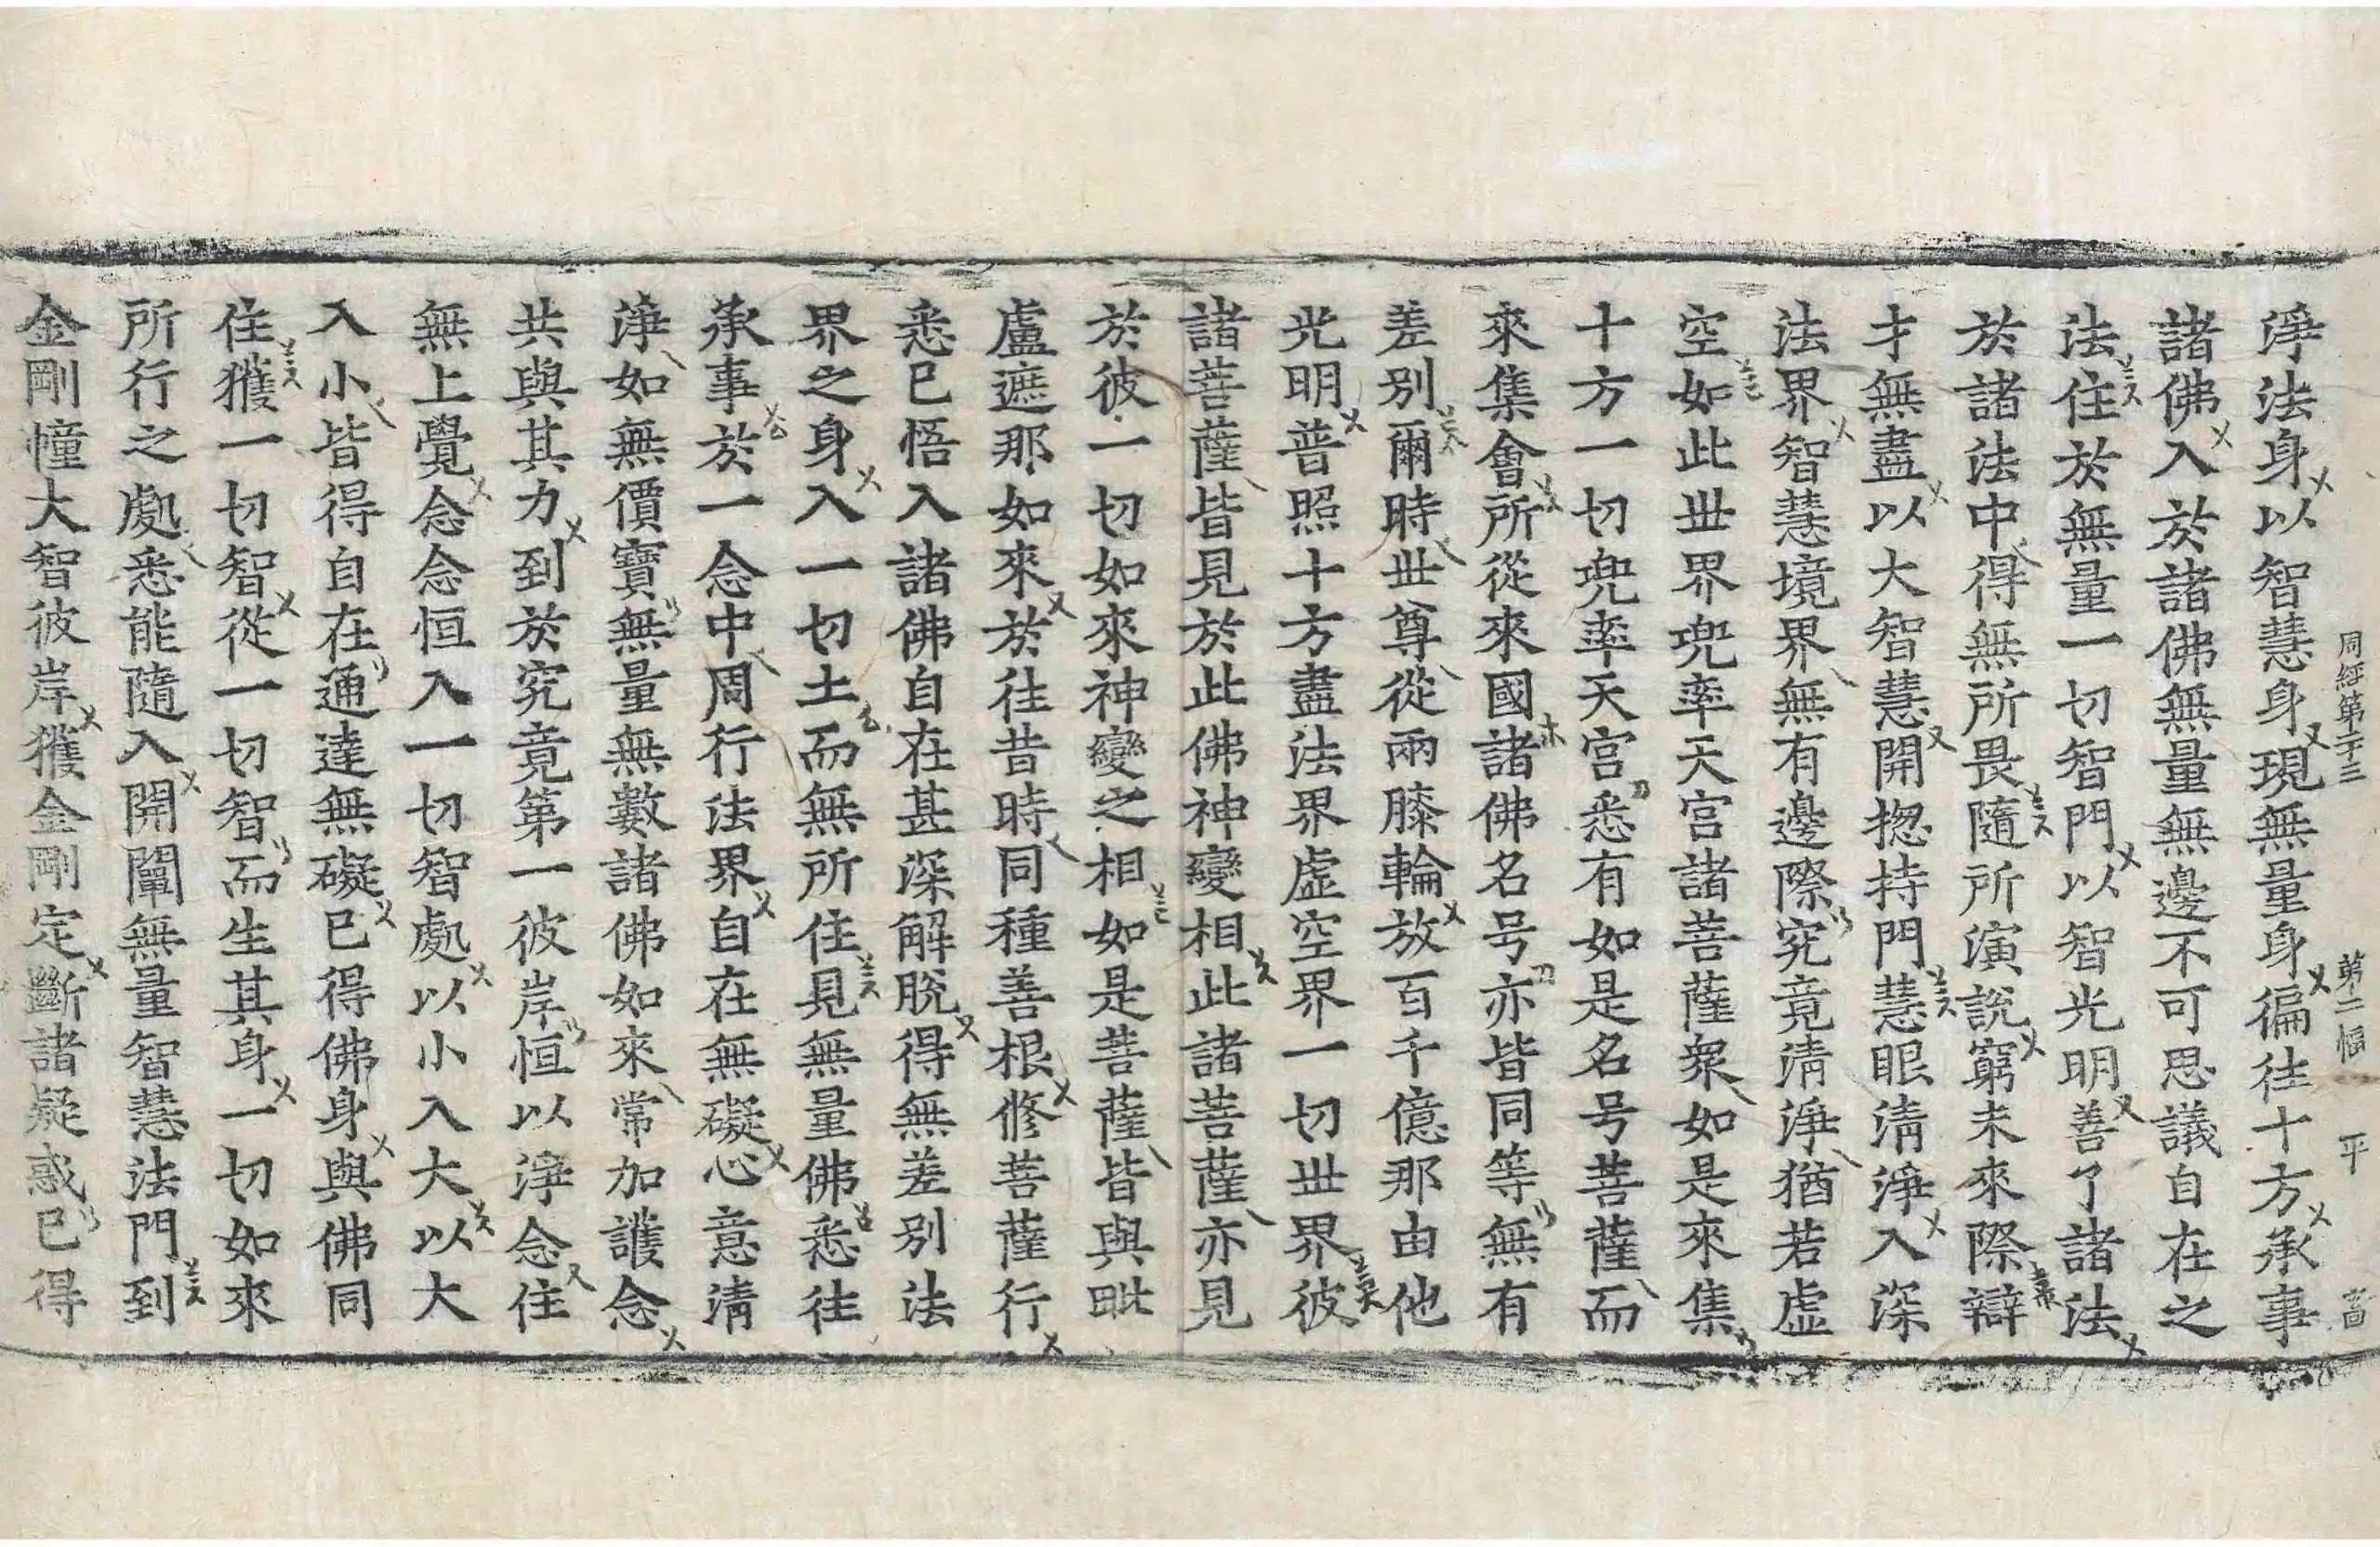 周經第二十三 第二幅 平 啚
淨法身以智慧身現無量身徧往十方承事
諸佛入於諸佛無量無邊不可思議自在之
法住於無量一切智門以智光明善了諸法
於諸法中得無所畏隨所演說窮未來際辯
才無盡以大智慧開揔持門慧眼淸淨入深
法界智慧境界無有邊際究竟淸淨猶若虛
空如此世界兜率天宮諸菩薩衆如是來集
十方一切兜率天宮悉有如是名号菩薩而
來集會所從來國諸佛名号亦皆同等無有
差別爾時世尊從兩膝輪放百千億那由他
光明普照十方盡法界虛空界一切世界彼
諸菩薩皆見於此佛神變相此諸菩薩亦見
於彼一切如來神變之相如是菩薩皆與毗
盧遮那如來於往昔時同種善根修菩薩行
悉已悟入諸佛自在甚深解脫得無差別法
界之身入一切土而無所住見無量佛悉往
承事於一念中周行法界自在無礙心意淸
淨如無價寶無量無數諸佛如來常加護念
共與其力到於究竟第一彼岸恒以淨念住
無上覺念念恒入一切智處以小入大以大
入小皆得自在通達無礙已得佛身與佛同
住獲一切智從一切智而生其身一切如來
所行之處悉能隨入開闡無量智慧法門到
金剛幢大智彼岸獲金剛定斷諸疑惑已得